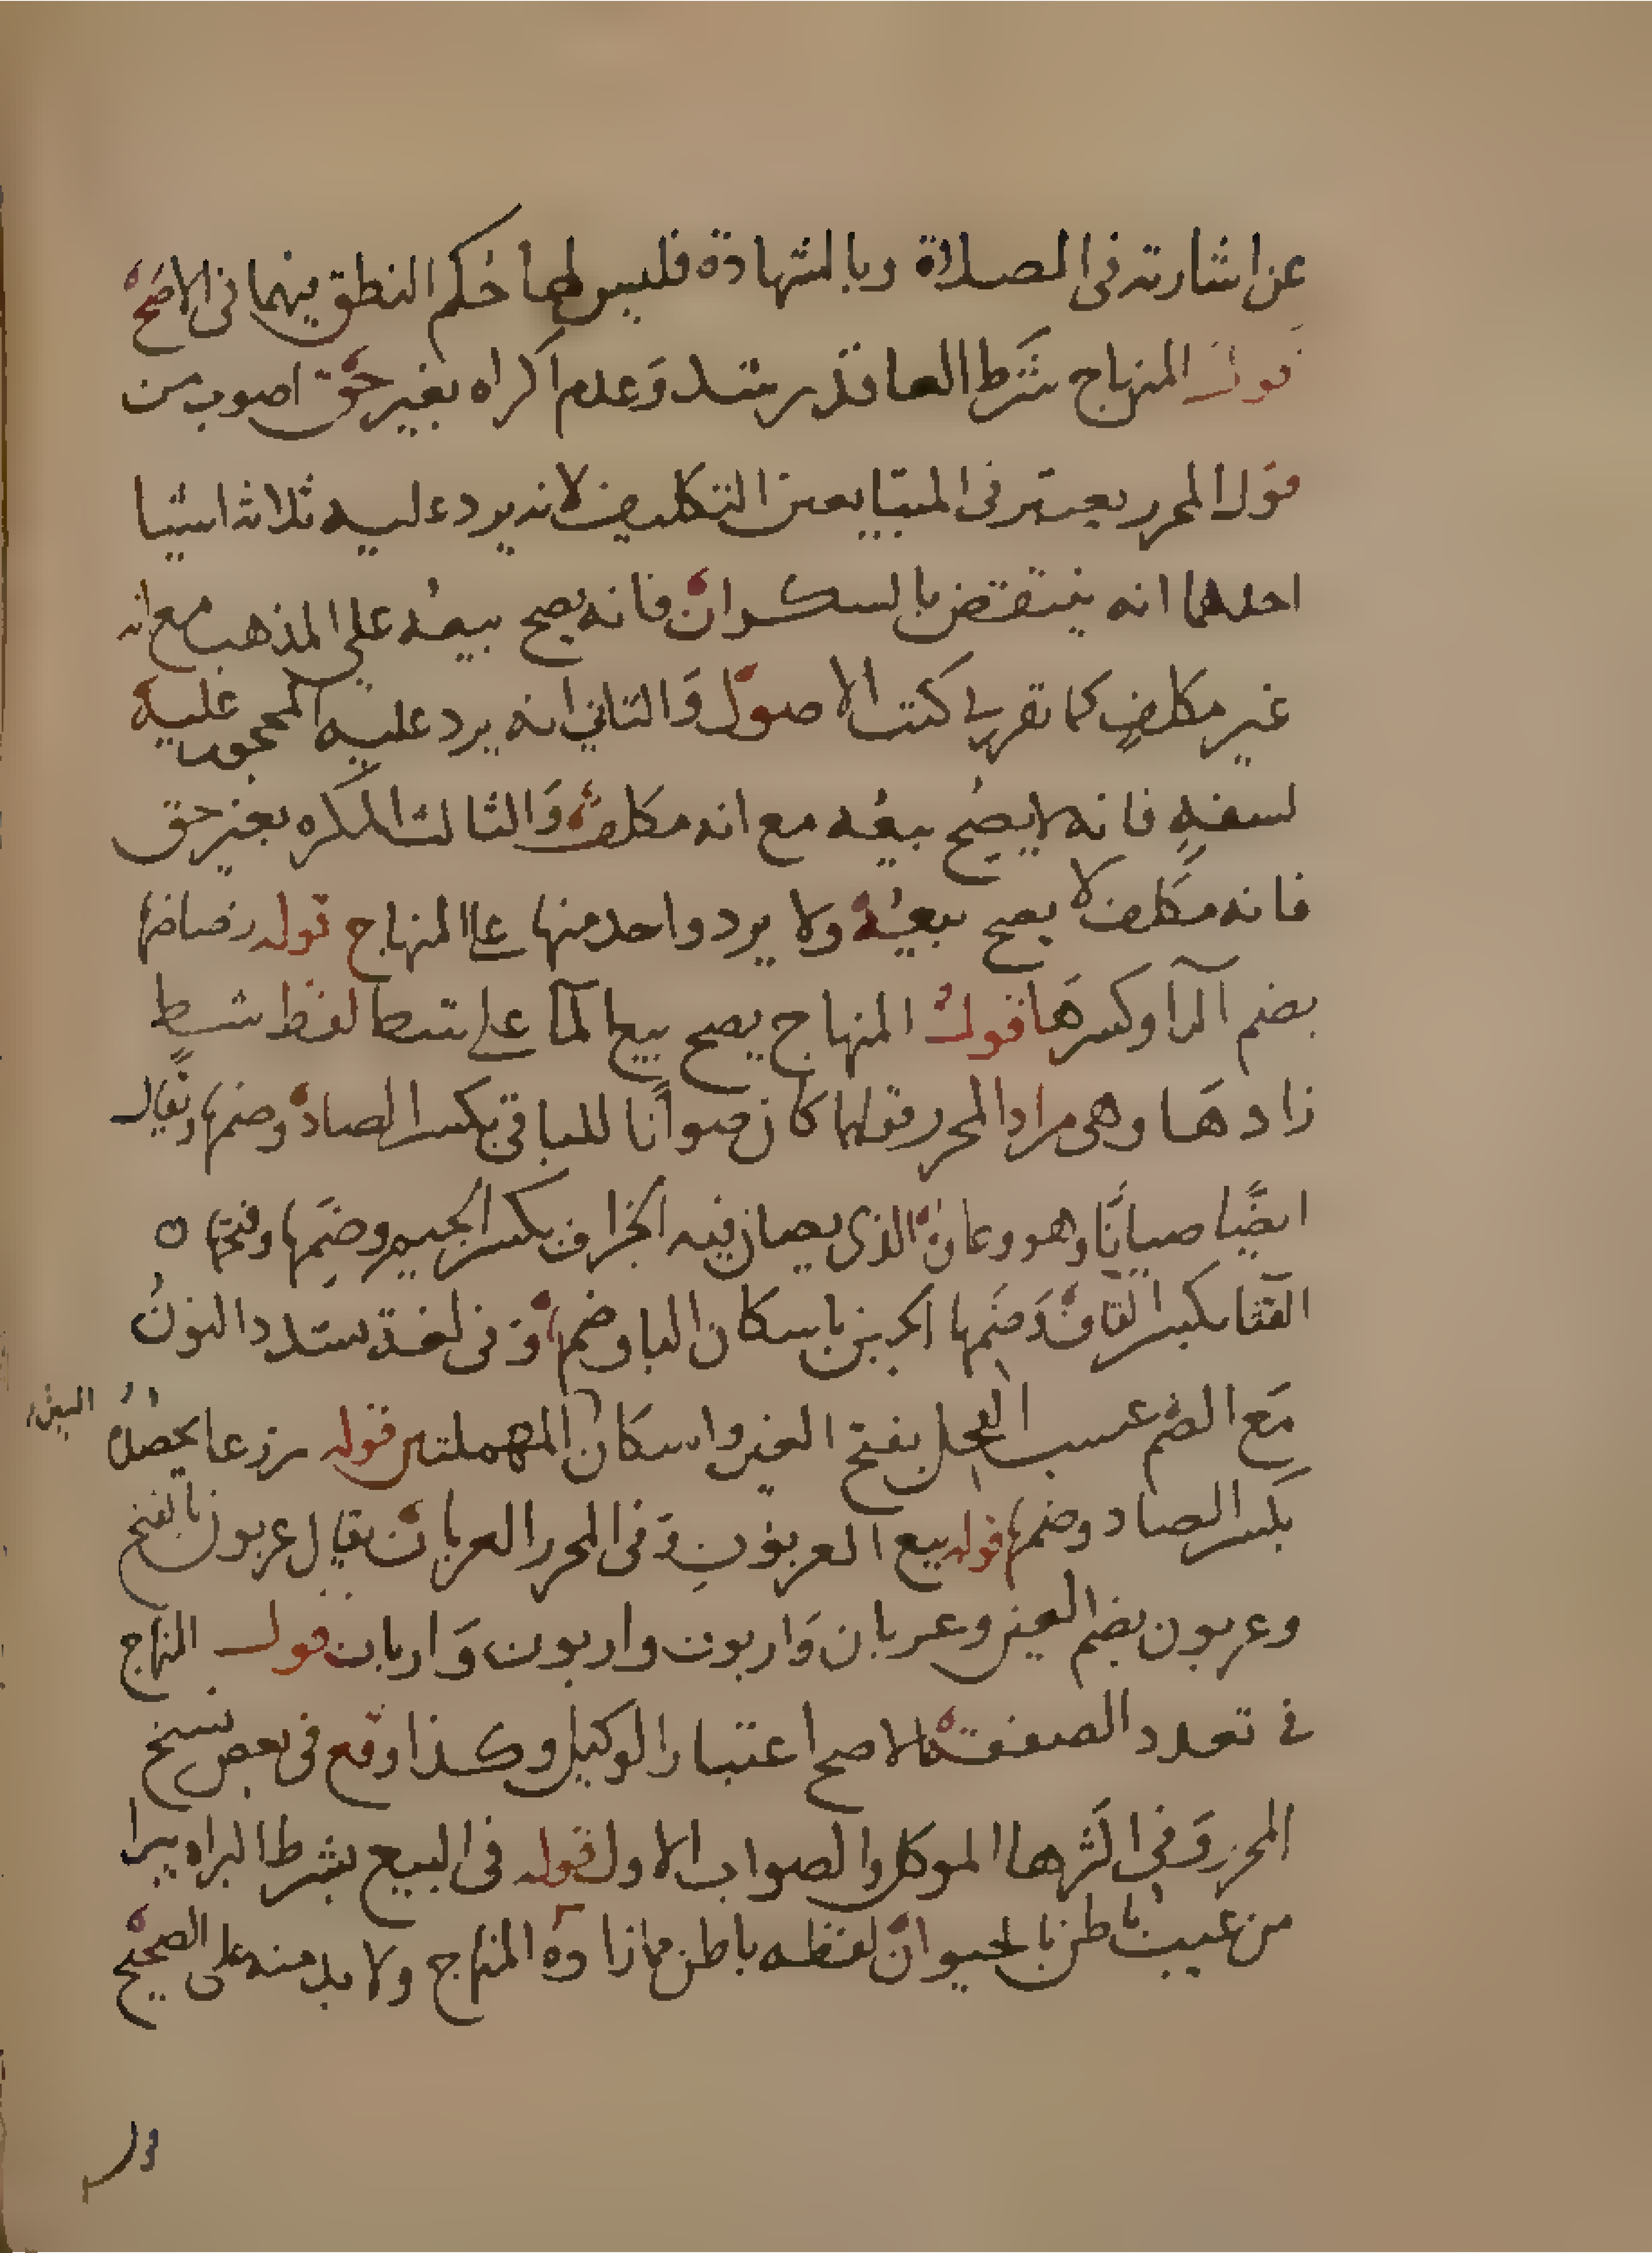 عن اشارته فى الصلاة وبالشهادة فليس لها حكم النطق فيهما فى الاصح
قول المنهاج شرط العاقد رشد وعدم اكراه بغير حق اصوب من
قول المحرر يعتبر فى المتبايعين التكليف لانه يرد عليه ثلاثة اشيا
احدهما انه ينتقض بالسكران فانه يصح بيعه على المذهب مع انه
غير مكلف كما تقرر فى كتب الاصول والثانى انه يرد عليه المحجور عليه
لسفه فانه لا يصح بيعه مع انه مكلف والثالث المكره بغير حق
فانه مكلف لا يصح بيعه ولا يرد واحد منها على المنهاج قوله رضاضها
بضم الرا وكسرها قول المنهاج يصح بيع الما على شط لفظ شط
زادها وهى مراد المحرر قولهما كان صوانا للباقى بكسر الصاد وضمها ويقال
ايضا صيانا وهو وعان الذى يصان فيه الجزاف بكسر الجيم وضمها وفتحها ه
القثا بكسر القاف وضمها الجبن باسكان البا وضمها وفى لغة تشدد النون
مع الضم عسب الفحل بفتح العين واسكان المهملتين قوله زرعا يحصد
البين
بكسر الصاد وضمها قوله بيع العربون وفى المحرر العربان يقال عربون بالفتح
وعربون بضم العين وعربان واربون واربون واربان قول المنهاج
فى تعدد الصفقة الاصح اعتبار الوكيل وكذا وقع فى بعض نسخ
المحرر وفى اكثرها الموكل والصواب الاول قوله فى البيع بشرط البراه يبرا
من عيب باطن بالحيوان لفظه باطن مما زاده المنهاج ولا بد منه على الصحيح